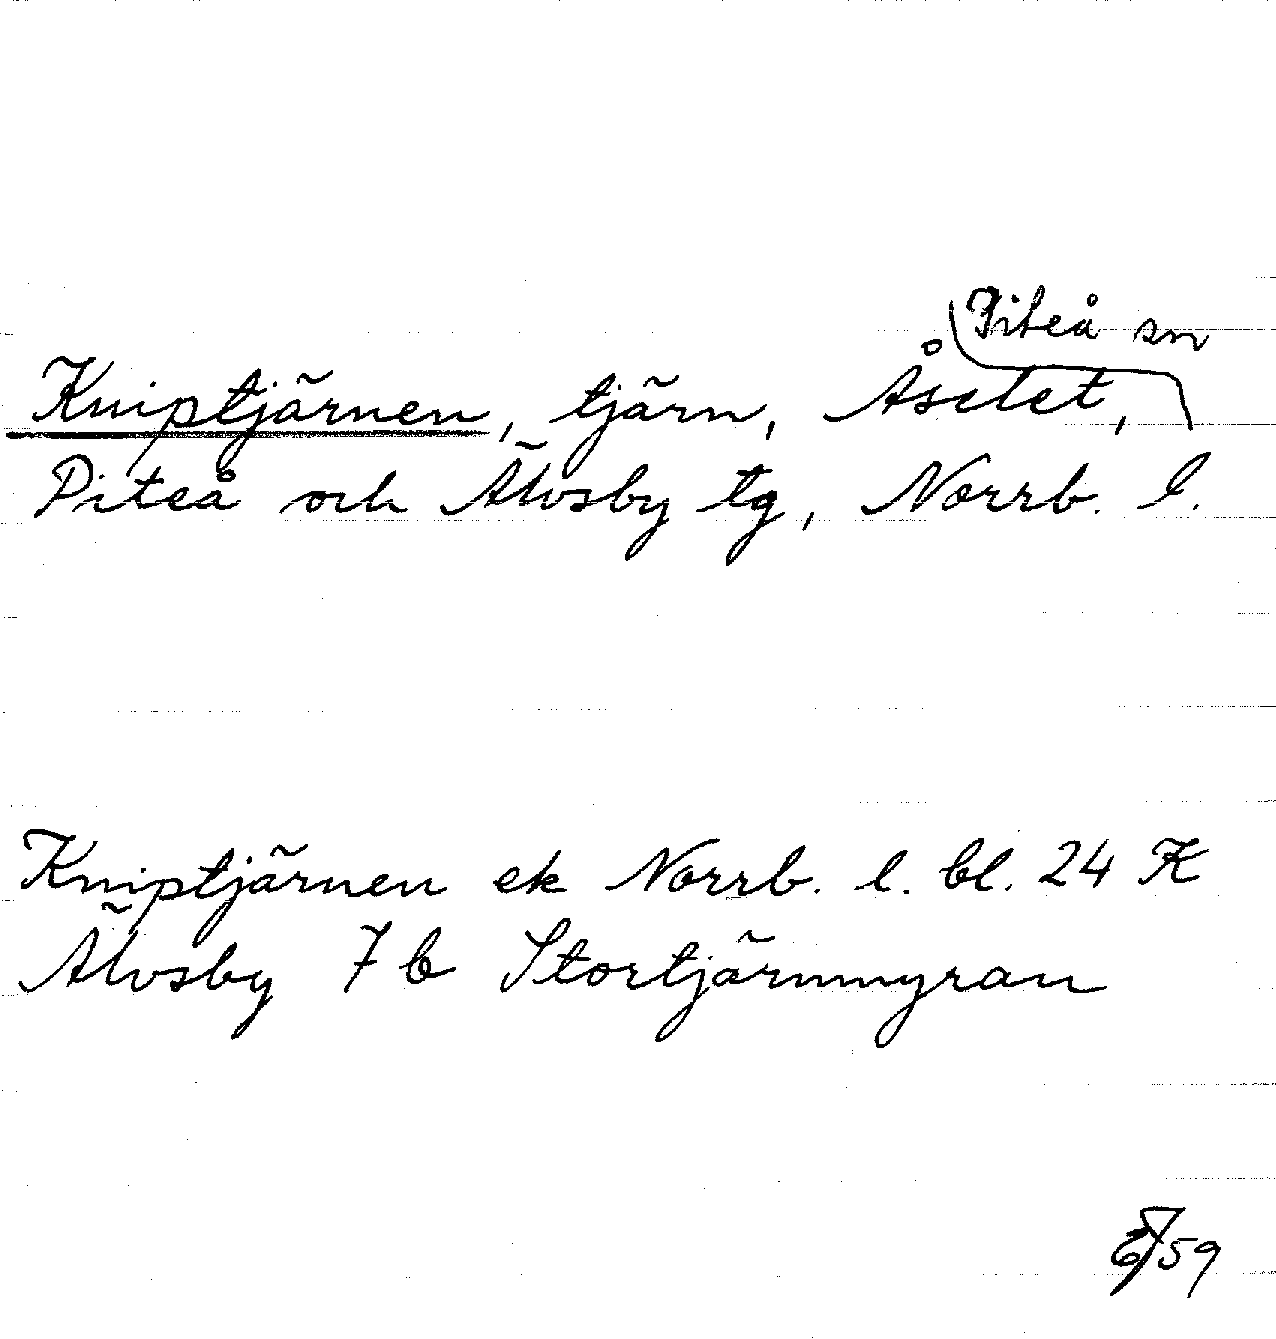 Piteå sn
Kniptjärnen, tjärn, Åselet,
Piteå och Älvsby tg, Norrb. l.
Kniptjärnen ek Norrb. l. bl. 24 K
Älvsby 7b Stortjärnmyran
59